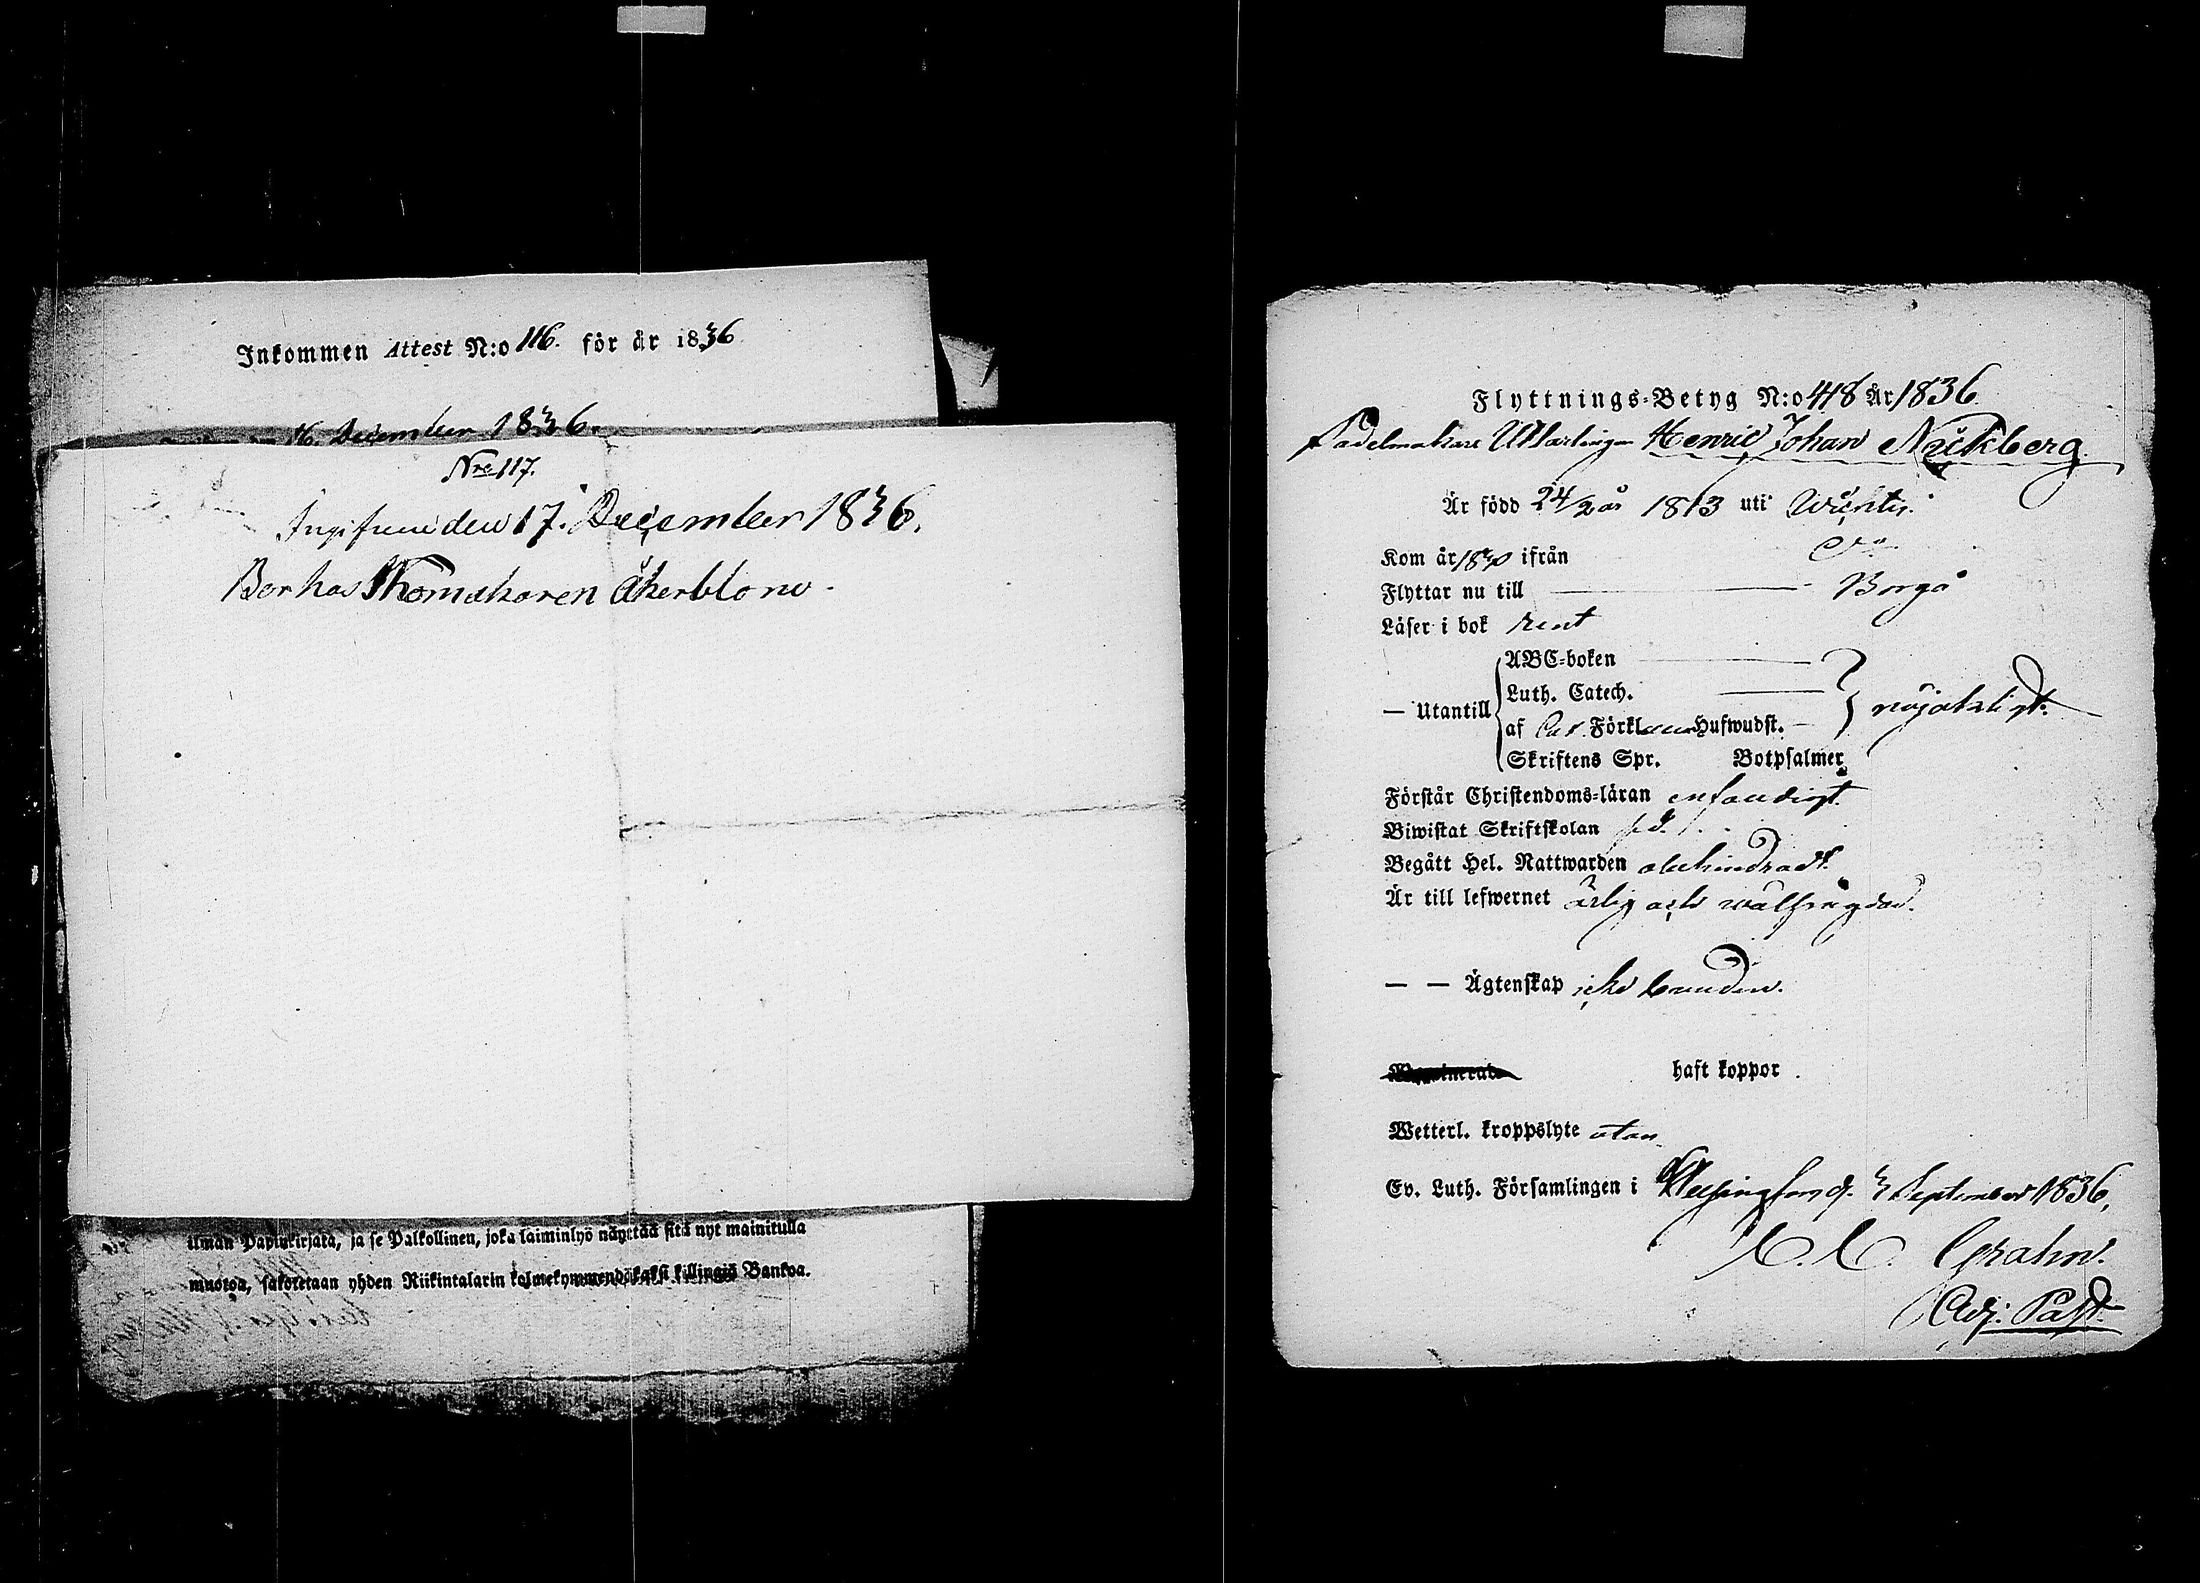 Inkommen Attest N:o 116. för år 1836
16. December 1836.
Nro 117.
Ingifven den 17. December 1836.
Bor hos Skomakaren Åkerblom
ilman Papinkirjata, ja se Palkollinen, joka laiminlyö näyttää sitä nyt mainitulla
muotoa, sakotetaan yhden Riikintalarin kolmekymmendäkaksi killingiä Bankoa.
Flyttnings-Betyg N:o 418 År 1836
Sadelmakare Utlärlingen Henric Johan Nickberg
Är född 24/2 år 1813 uti Wichtis.
Kom år 1830 ifrån Do
Flyttar nu till Borgå
Läser i bok rent
— Utantill ABC-boken
Luth. Catech.
af Förkl. Hufwudst. — nöjaktigt.
Skriftens Spr. Botpsalmer
Förstår Christendoms-läran enfaldigt.
Biwistat Skriftskolan
Begått Hel. Nattwarden obehindradt.
Är till lefwernet ärlig och wälfrägdad.
— — Ägtenskap icke bunden.
haft koppor.
Wetterl. kroppslyte utan
Ev. Luth. Församlingen i Helsingfors d. 3 September 1836,
C. C. Grahn.
Adj. Past.